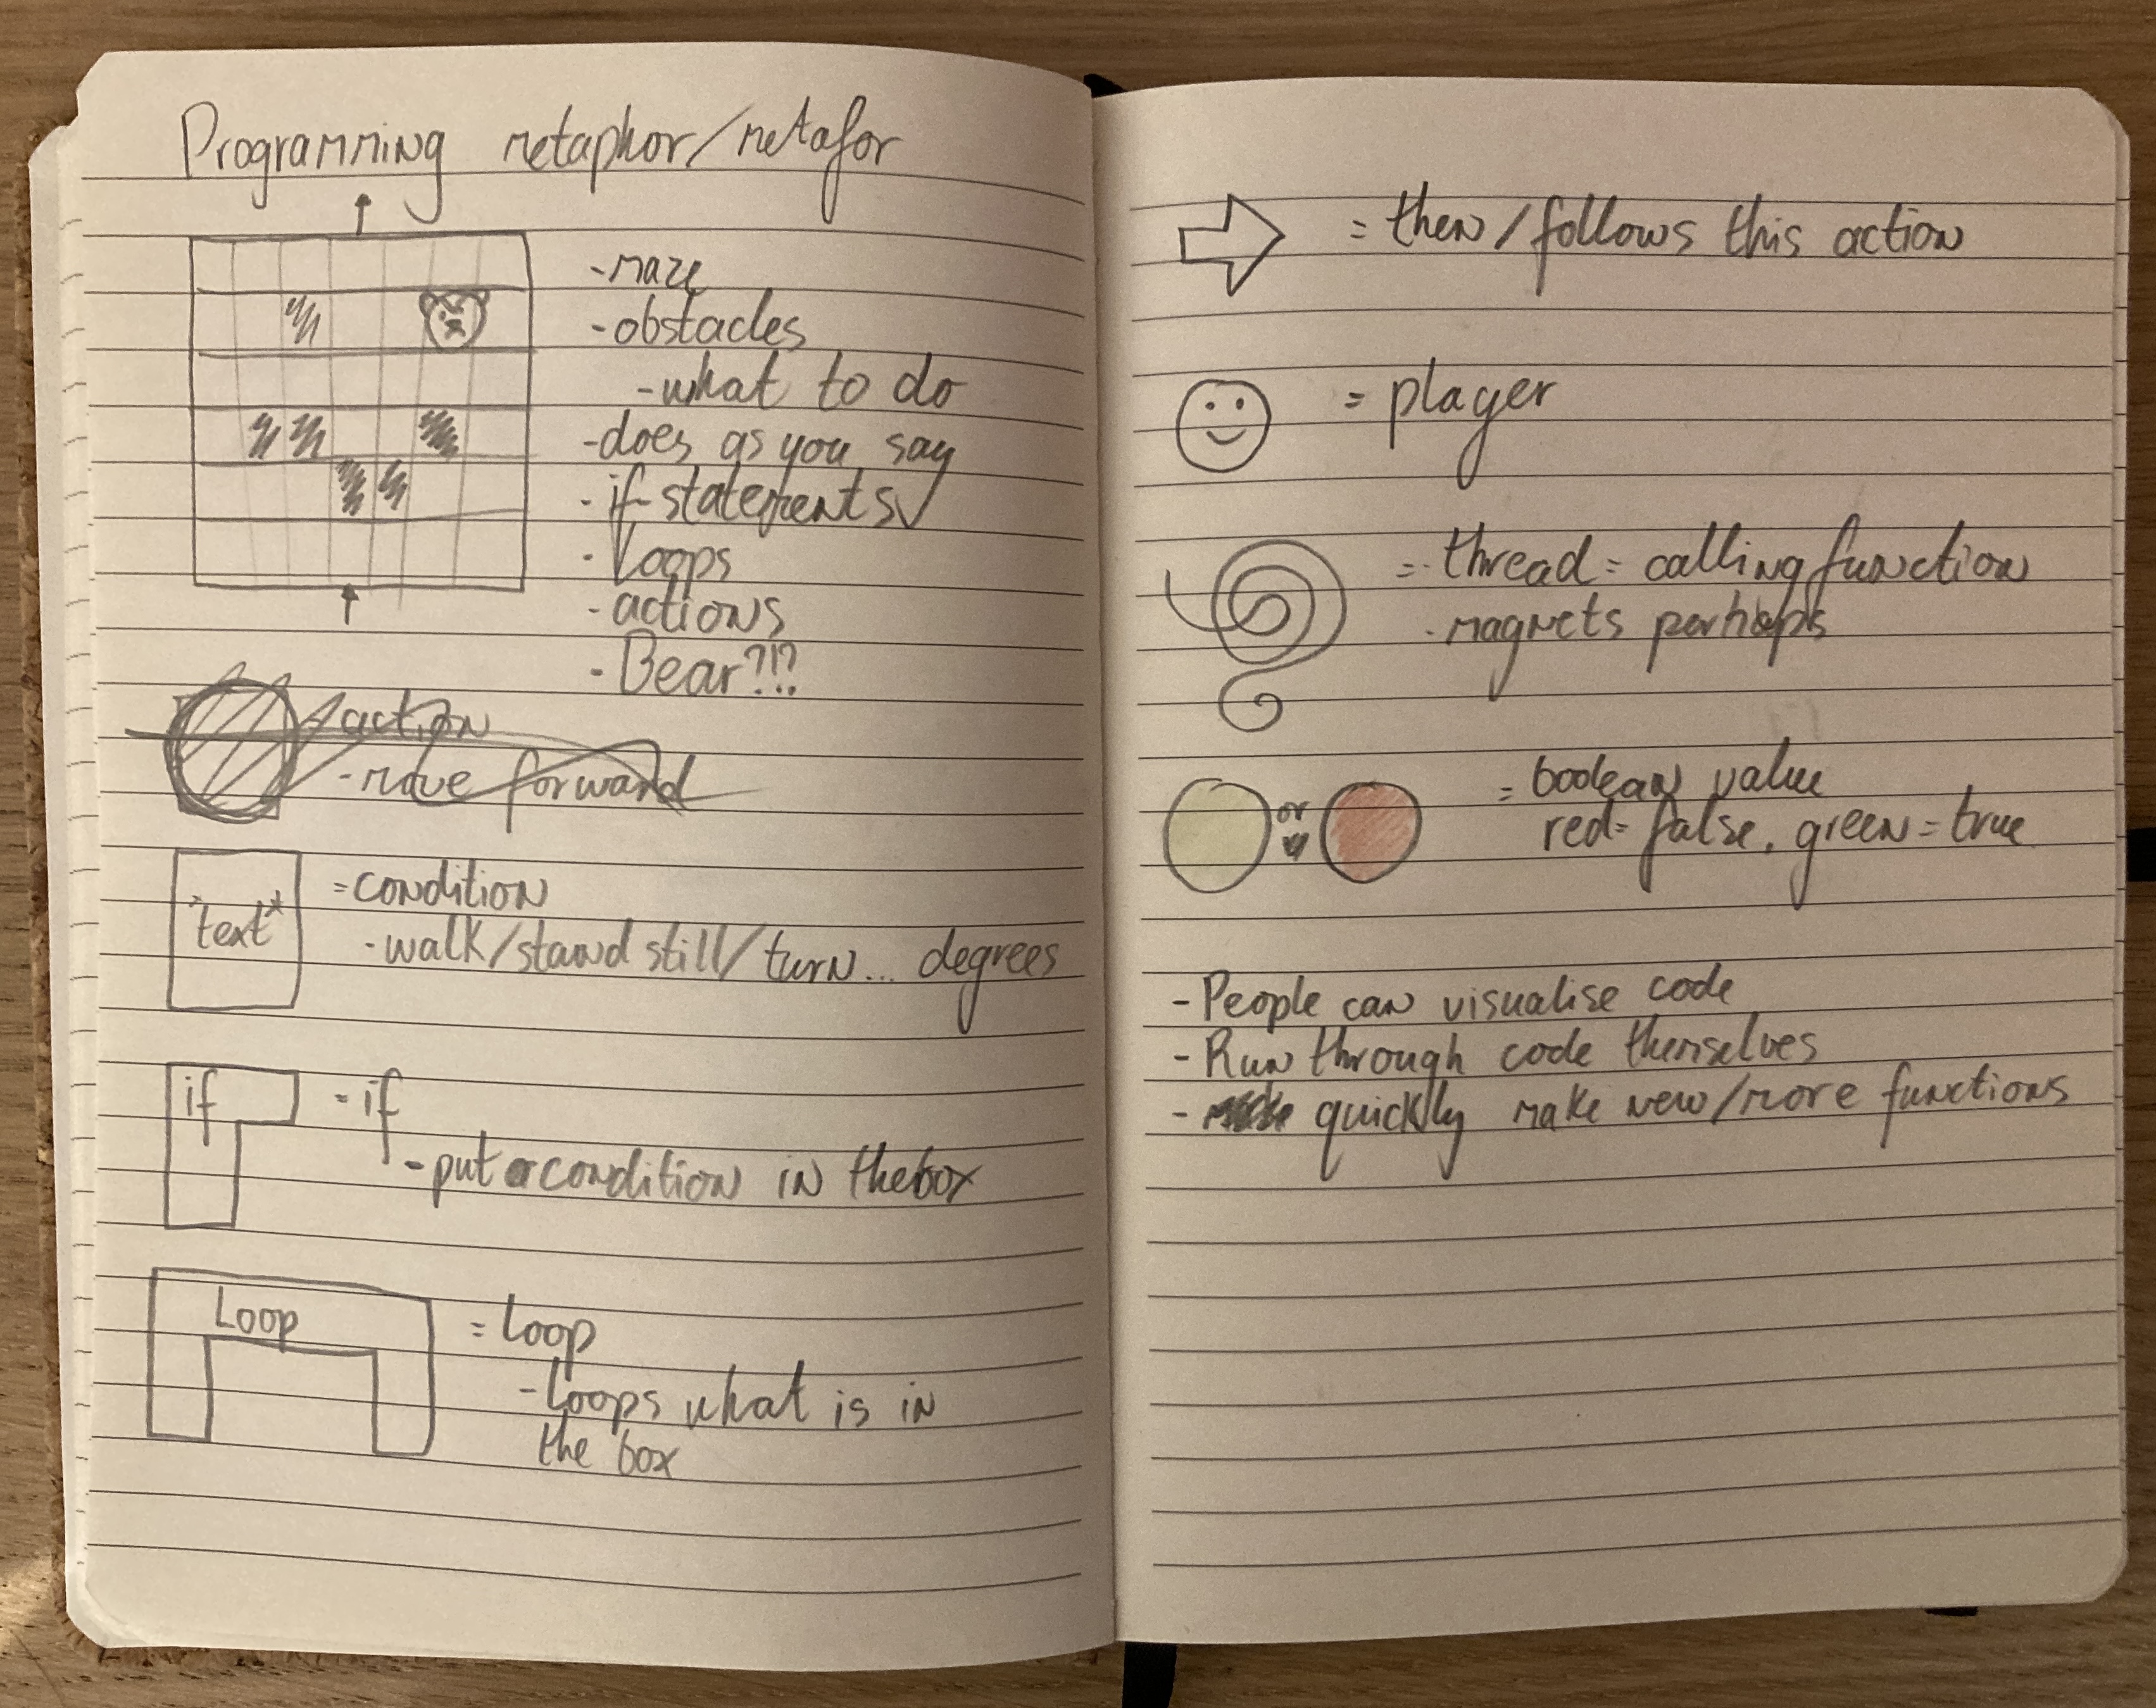 Programming metaphor/metafor
-maze
-obstacles
-what to do
-does as you say
-if-statements
-Loops
-actions
-Bear?!?
action
-move forward
*text*
=condition
-walk/stand still/turn... degrees
if
=if
-put a condition in the box
Loop
=Loop
-Loops what is in
the box
= then/follows this action
= player
= thread = calling function
-magnets perhaps
or
= boolean value
red=false, green=true
-People can visualise code
-Run through code themselves
- quickly make new/more functions